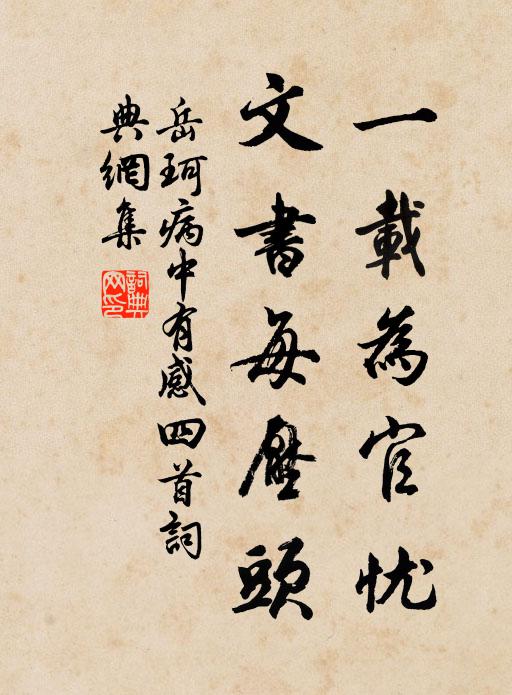 一載為官忙
文書每壓頭
岳珂病中有感四首詞
典網集
詞典网印